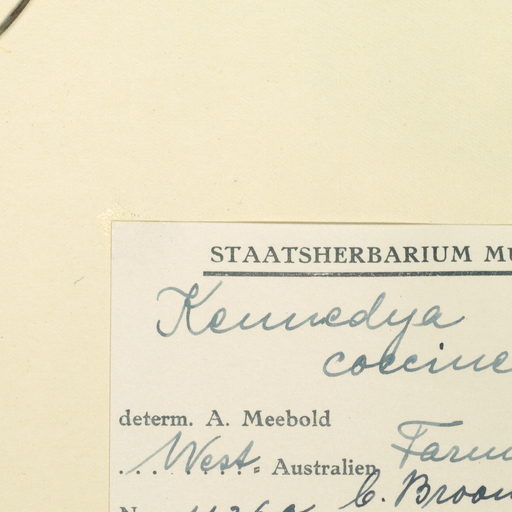 STAATSHERBARIUM MU
Kennedya
coccine
determ. A. Meebold
West- Australien Farm
C. Broom